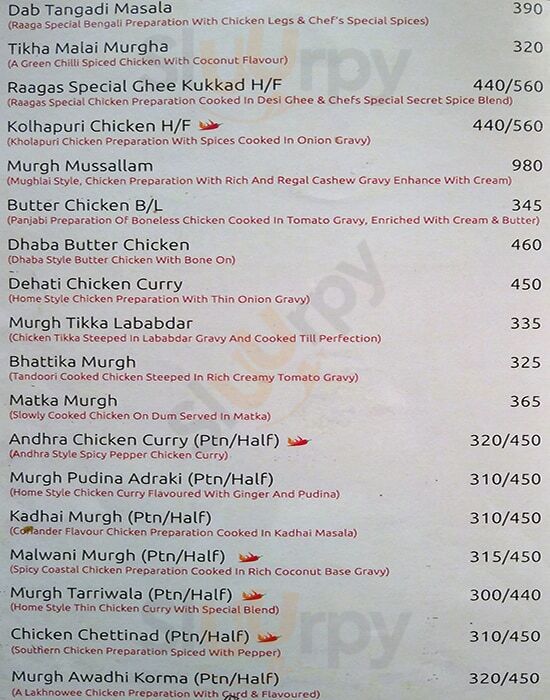 Dab Tangadi Masala 390
(Raaga Special Bengali Preparation With Chicken Legs & Chef's Special Spices)
Tikha Malai Murgha 320
(A Green Chilli Spiced Chicken With Coconut Flavour)
Raagas Special Ghee Kukkad H/F 440/560
(Raagas Special Chicken Preparation Cooked In Desi Ghee & Chefs Special Secret Spice Blend)
Kolhapuri Chicken H/F 440/560
(Kholapuri Chicken Preparation With Spices Cooked In Onion Gravy)
Murgh Mussallam 980
(Mughlai Style, Chicken Preparation With Rich And Regal Cashew Gravy Enhance With Cream)
Butter Chicken B/L 345
(Panjabi Preparation Of Boneless Chicken Cooked In Tomato Gravy, Enriched With Cream & Butter)
Dhaba Butter Chicken 460
(Dhaba Style Butter Chicken With Bone On)
Dehati Chicken Curry 450
(Home Style Chicken Preparation With Thin Onion Gravy)
Murgh Tikka Lababdar 335
(Chicken Tikka Steeped In Lababdar Gravy And Cooked Till Perfection)
Bhattika Murgh 325
(Tandoori Cooked Chicken Steeped In Rich Creamy Tomato Gravy)
Matka Murgh 365
(Slowly Cooked Chicken On Dum Served In Matka)
Andhra Chicken Curry (Ptn/Half) 320/450
(Andhra Style Spicy Pepper Chicken Curry)
Murgh Pudina Adraki (Ptn/Half) 310/450
(Home Style Chicken Curry Flavoured With Ginger And Pudina)
Kadhai Murgh (Ptn/Half) 310/450
(Coriander Flavour Chicken Preparation Cooked In Kadhai Masala)
Malwani Murgh (Ptn/Half) 315/450
(Spicy Coastal Chicken Preparation Cooked In Rich Coconut Base Gravy)
Murgh Tarriwala (Ptn/Half) 300/440
(Home Style Thin Chicken Curry With Special Blend)
Chicken Chettinad (Ptn/Half) 310/450
(Southern Chicken Preparation Spiced With Pepper)
Murgh Awadhi Korma (Ptn/Half) 320/450
(A Lakhnowee Chicken Preparation With Curd & Flavoured)
Sluurpy
Sluurpy
Sluurpy